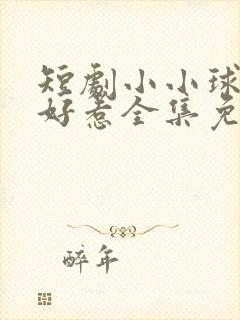 短劇小小球
好惹全集免
醉年